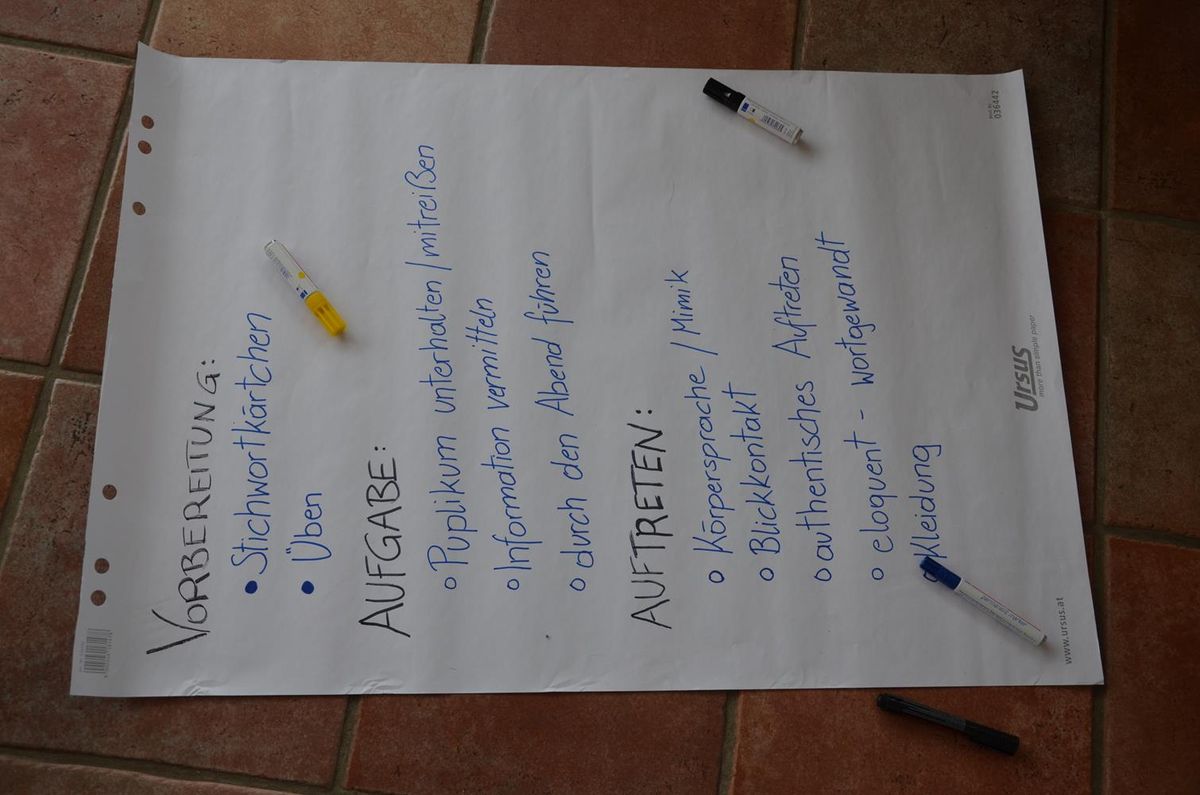 VORBEREITUNG:
• Stichwortkärtchen
• Üben
AUFGABE:
○ Puplikum unterhalten / mitreißen
○ Information vermitteln
○ durch den Abend führen
AUFTRETEN:
○ Körpersprache / Mimik
○ Blickkontakt
○ authentisches Auftreten
○ eloquent - wortgewandt
○ Kleidung
www.ursus.at
Ursus
more than simple paper
036442